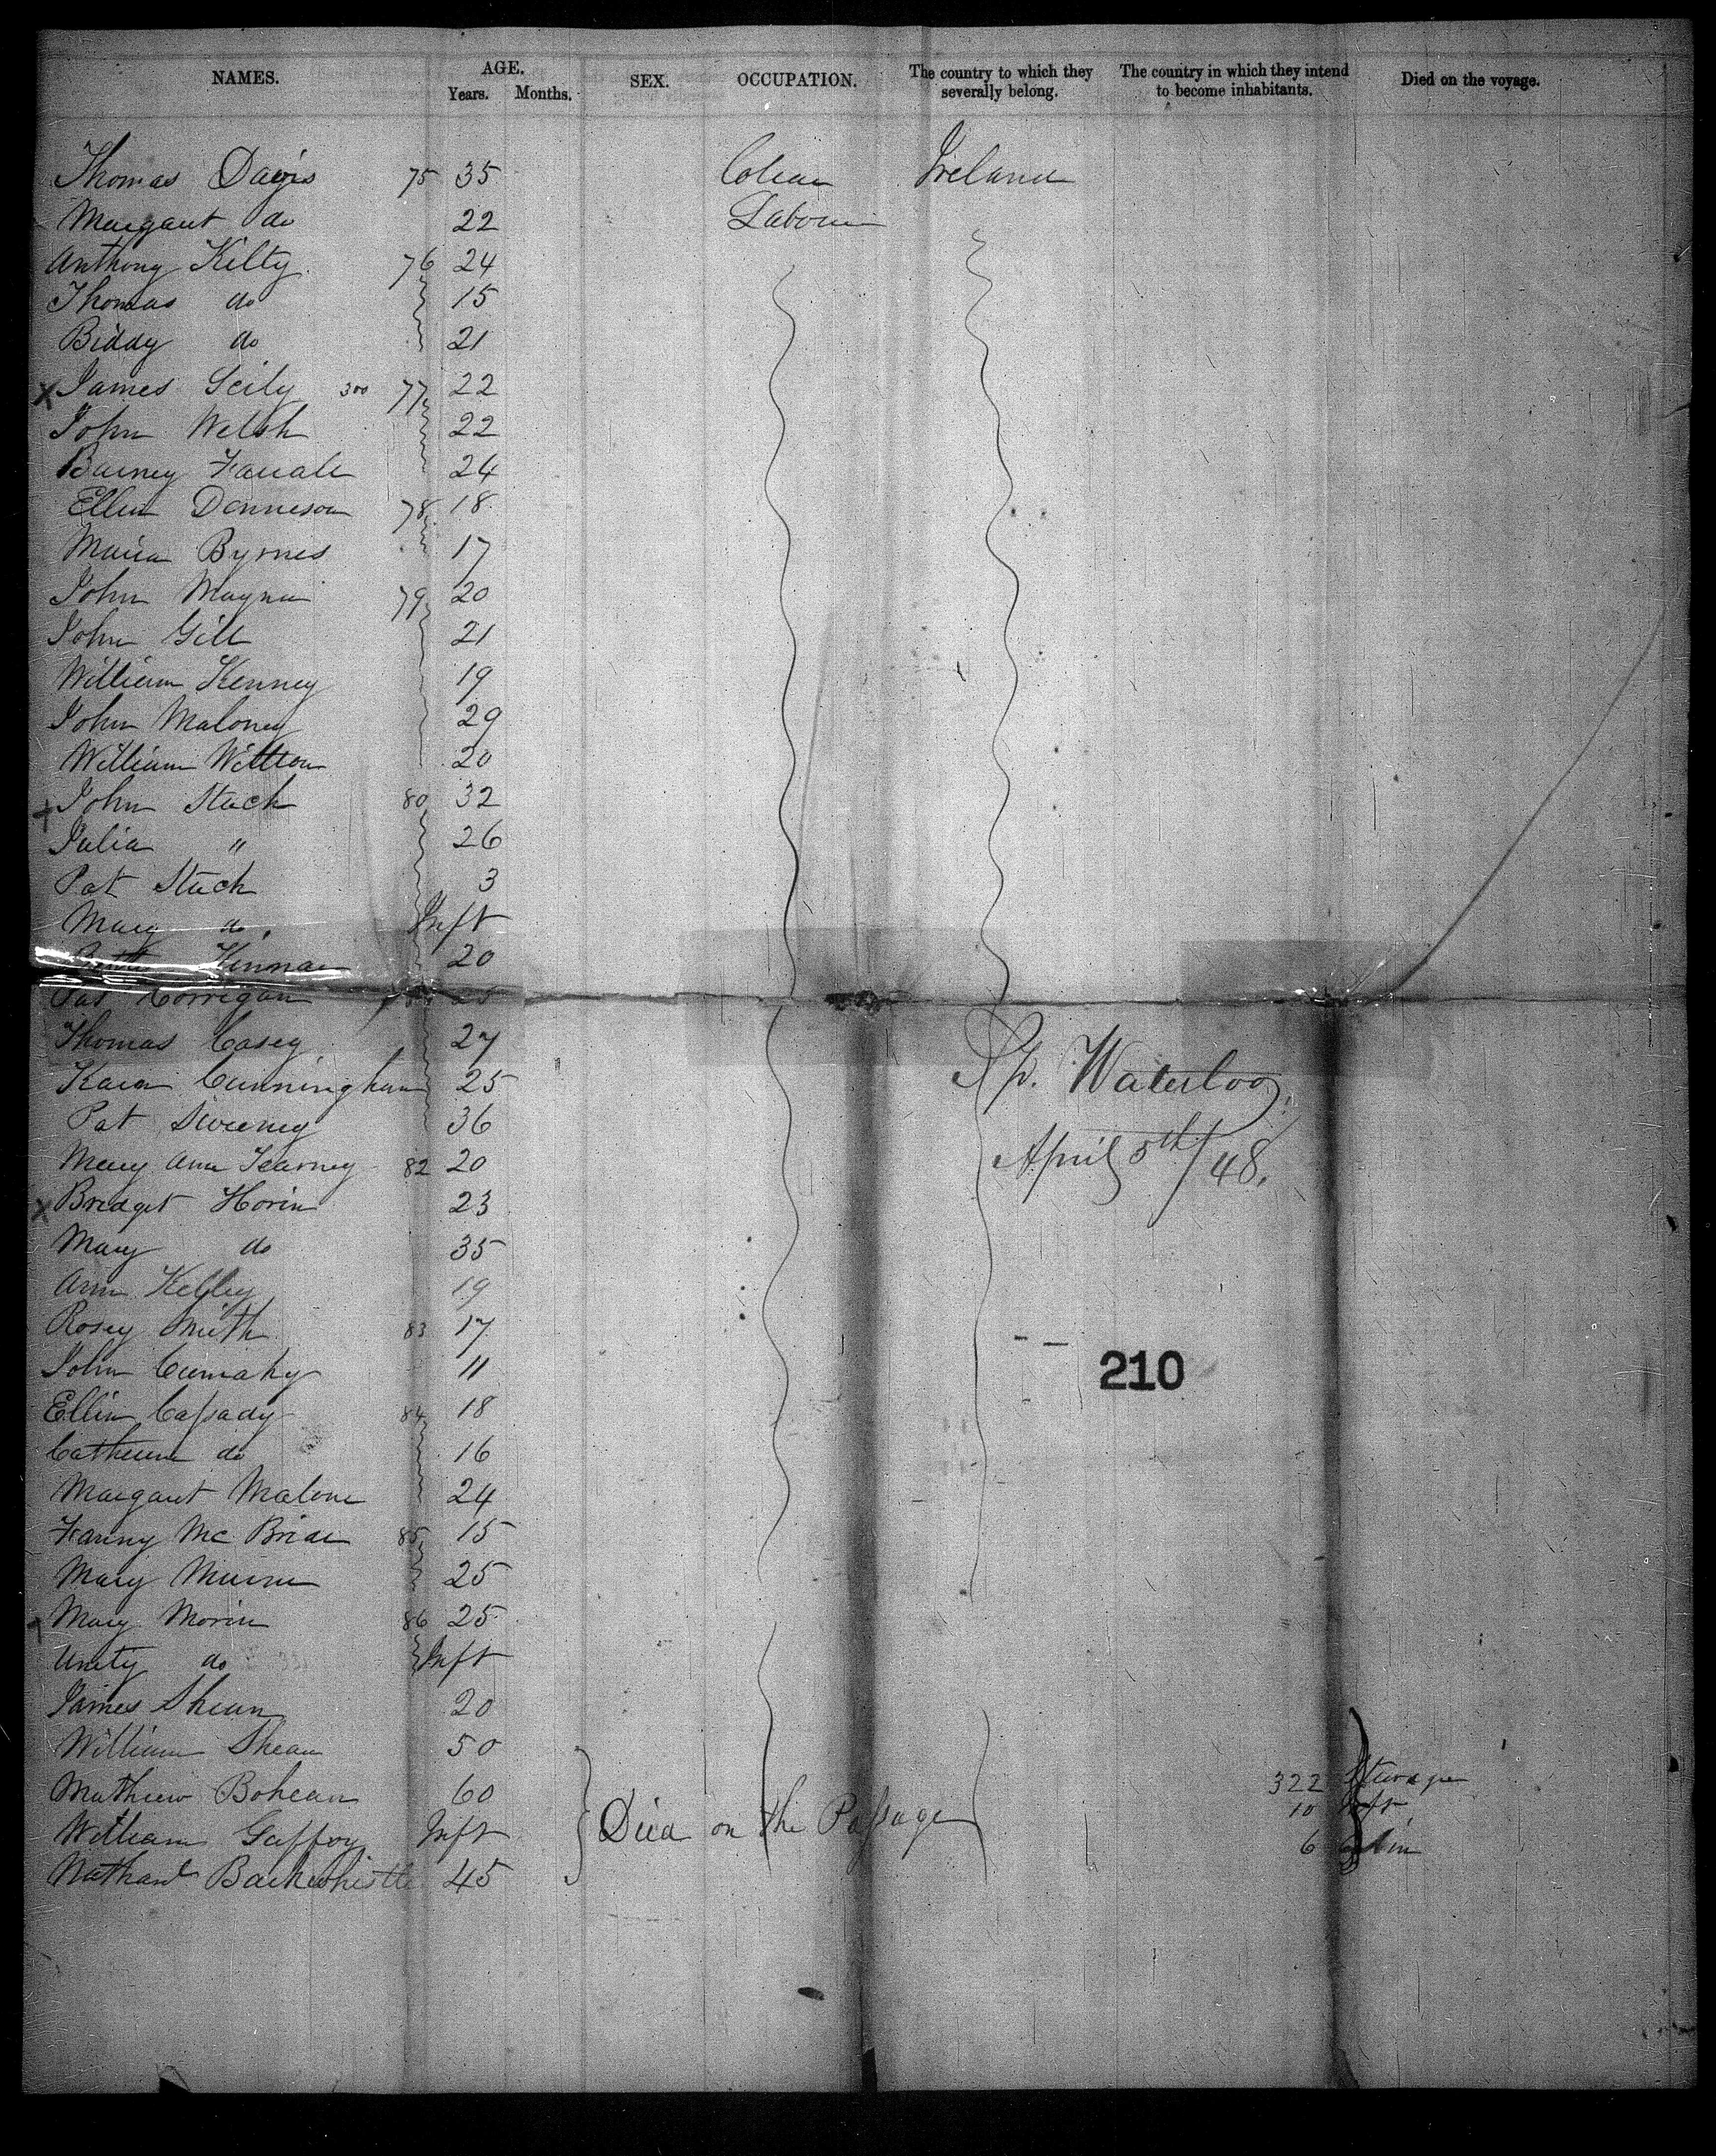 NAMES. AGE. Years. Months. SEX. OCCUPATION. The country to which they severally belong. The country in which they intend to become inhabitants. Died on the voyage.
Thomas Davis 75 35 Ireland
Margaret do 22 Labourer
Anthony Kilty 76 24
Thomas do 15
Biddy do 21
X James Scily 300 77 22
John Welsh 22
Barney 24
Ellen Denneson 78 18
Maria Byrnes 17
John 79 20
John Gill 21
William Kenney 19
John Maloney 29
William Witton 20
+ John Stack 80 32
Julia " 26
Pat Stack 3
Mary do. Inft
Kinnan 20
Pat Corrigan
Thomas Casey 27
Cunningham 25
Pat Sweeney 36
Sp. Waterloo
April 5th/48.
Mary Ann Tearney 82 20
X Bridget Horin 23
Mary do 35
Ann Kelley 19
Rosey Smith 83 17
John 11
210
Ellin Cassady 84 18
Catherine do 16
Margaret Malone 24
Fanny Mc Bride 85 15
Mary 25
Mary Morin 86 25
Unity do Inft
James Shean 20
William Shean 50
Mathew Bohean 60
William Gaffoy Inft
Nathanl 45
Died on the Passage
322 Steerage
10 Inft
6 Cabin